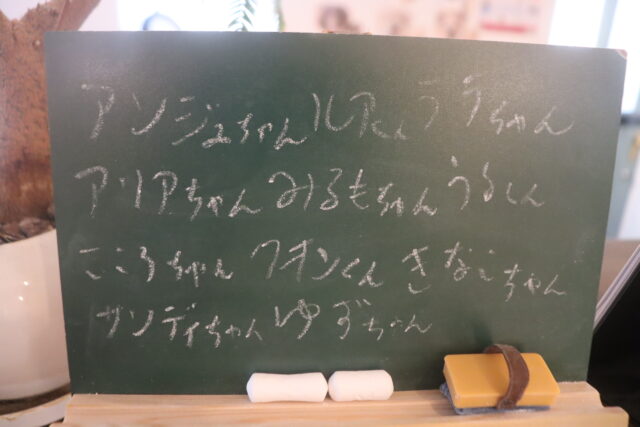 アンジュちゃん ララちゃん
アリアちゃん みるもちゃん うるくん
こころちゃん クオンくん きなこちゃん
サンディちゃん ゆずちゃん